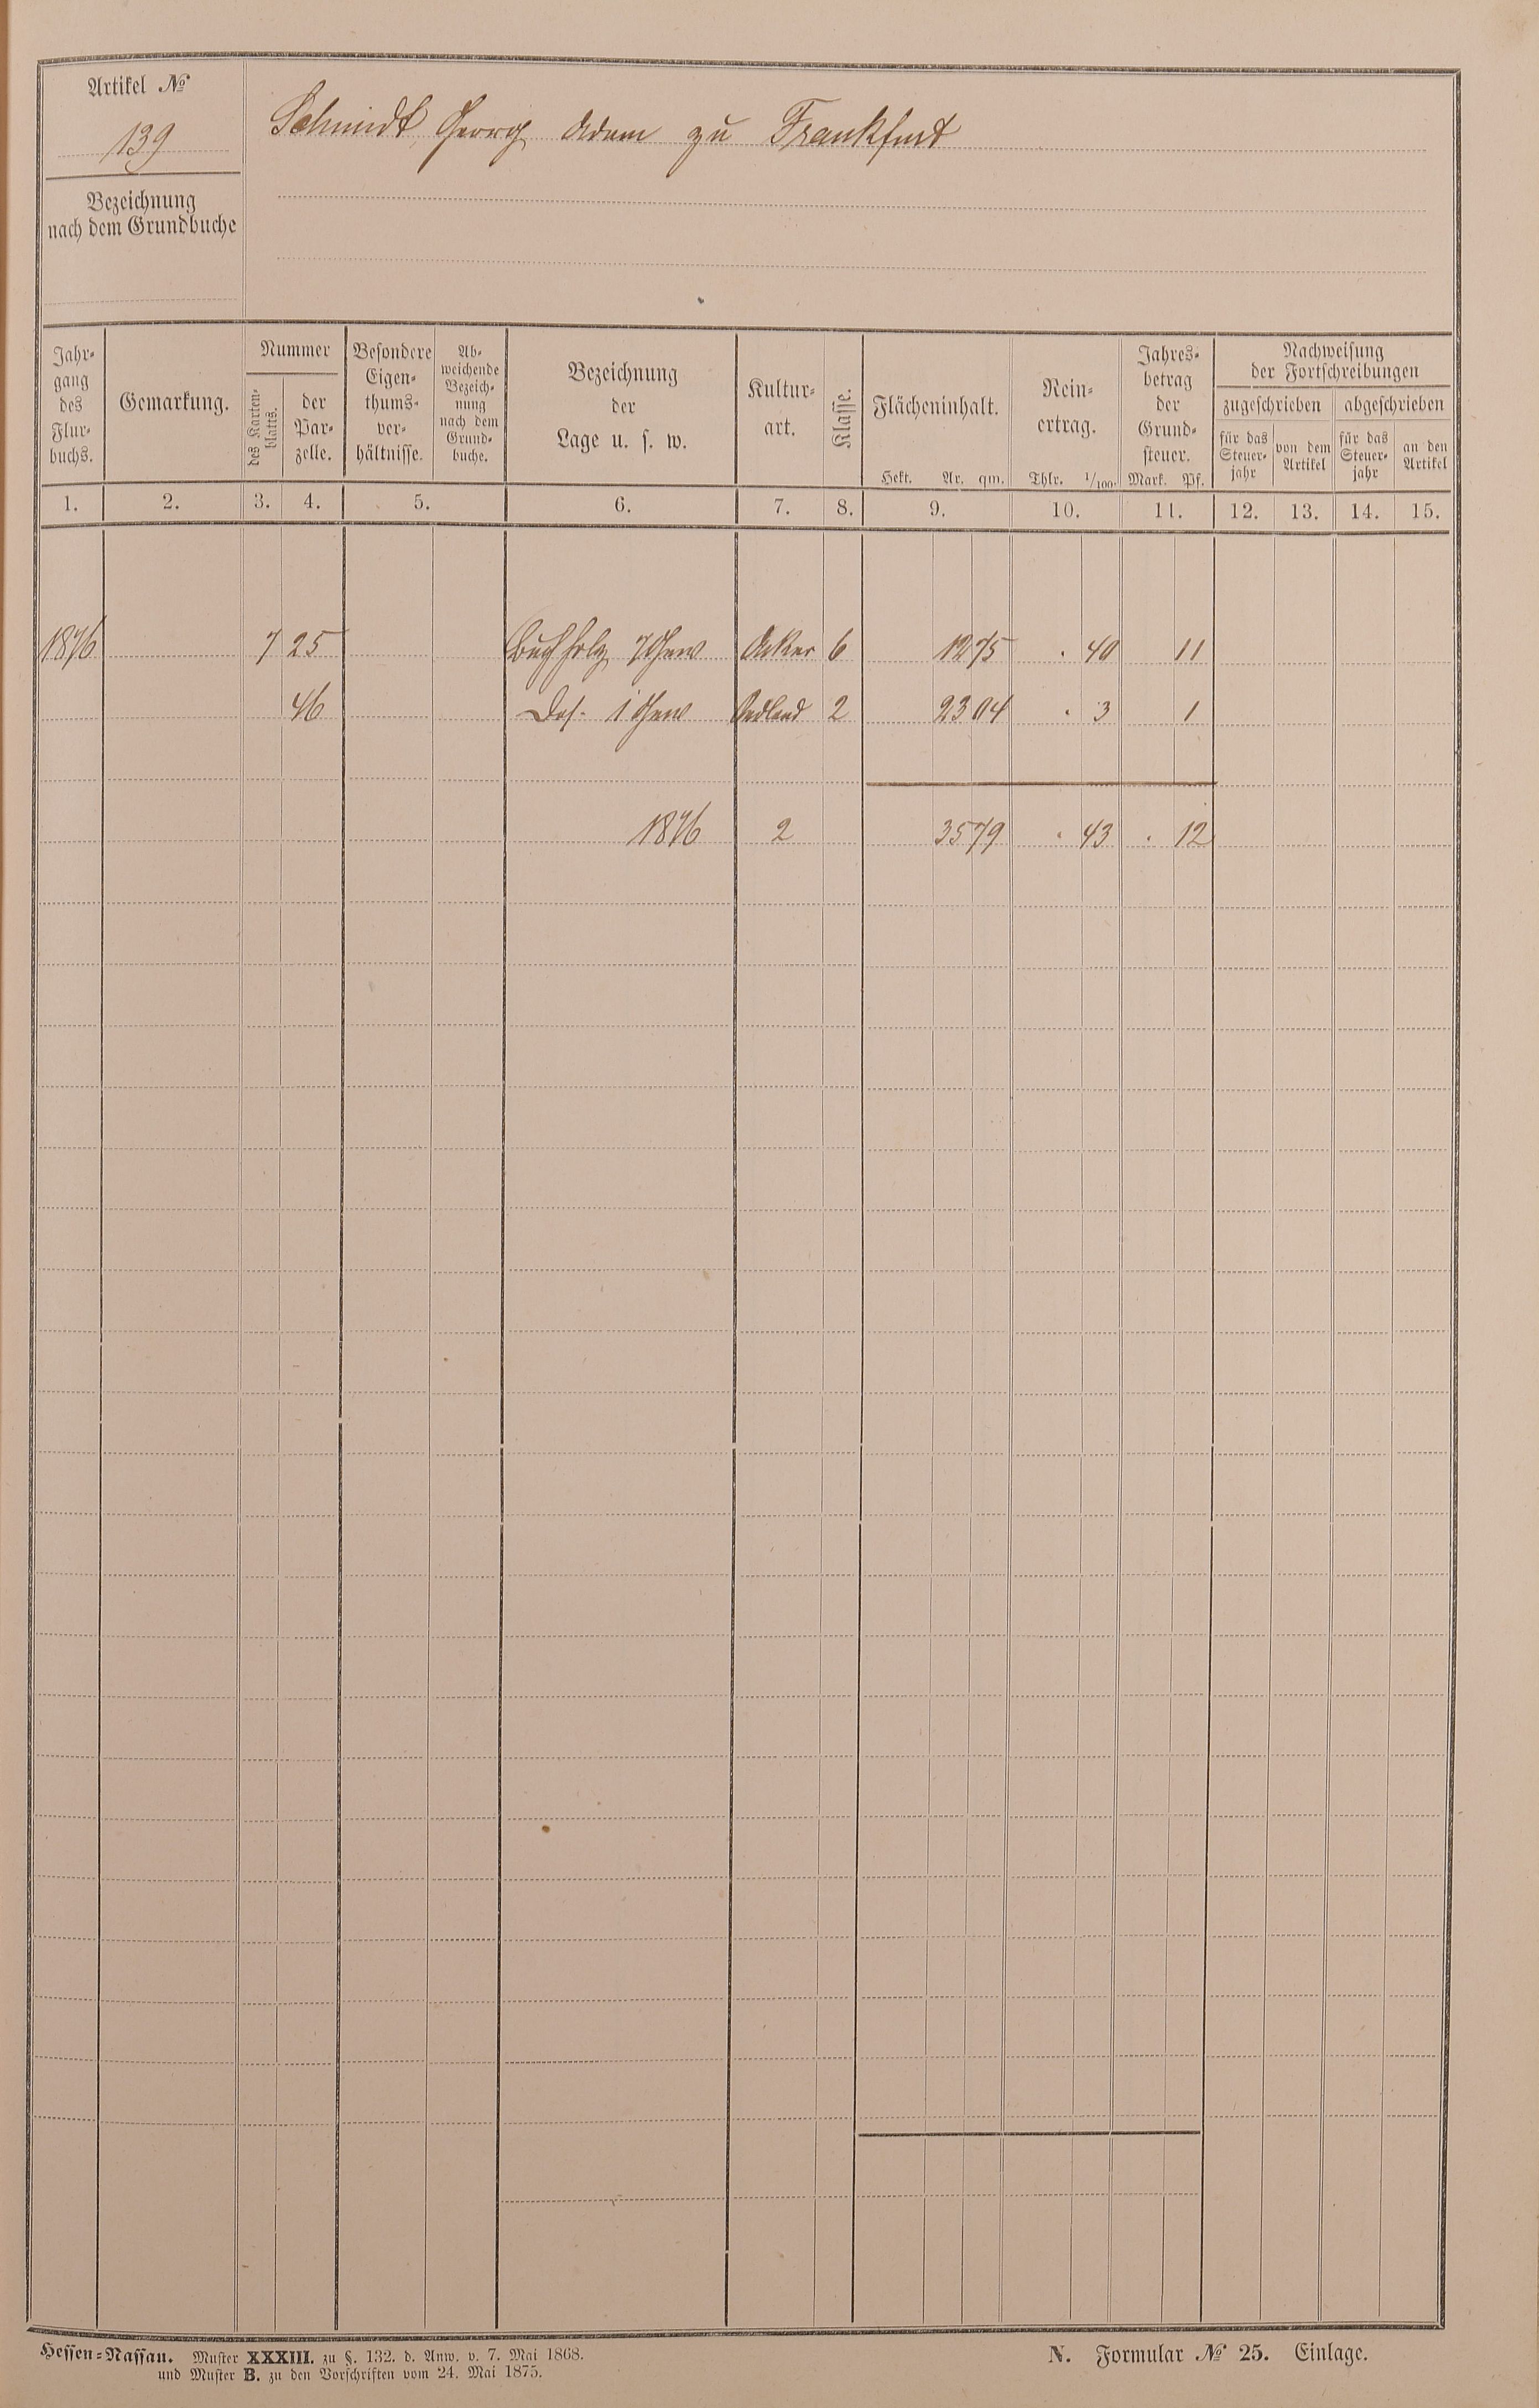 Artikel №
139
Schmidt, Georg Adam zu Frankfurt
Bezeichnung
nach dem Grundbuche
Jahr-
gang
des
Flur-
buchs.
Gemarkung.
Nummer
des Karten-
blatts.
der
Par-
zelle.
Besondere
Eigen-
thums-
ver-
hältnisse.
Ab-
weichende
Bezeich-
nung
nach dem
Grund-
buche.
Bezeichnung
der
Lage u. s. w.
Kultur-
art.
Klasse.
Flächeninhalt.
Hekt. Ar. qm.
Rein-
ertrag.
Thlr. 1/100.
Jahres-
betrag
der
Grund-
steuer.
Mark. Pf.
Nachweisung
der Fortschreibungen
zugeschrieben abgeschrieben
für das
Steuer-
jahr
von dem
Artikel
für das
Steuer-
jahr
an den
Artikel
1. 2. 3. 4. 5. 6. 7. 8. 9. 10. 11. 12. 13. 14. 15.
1876 7 25 Buchholz 7 Gew Acker 6 12 75 . 40 11
46 Das. 1 Gew Oedland 2 23 04 . 3 1
1876 2 35 79 . 43 . 12
Hessen-Nassau. Muster XXXIII. zu §. 132. d. Anw. v. 7. Mai 1868.
und Muster B. zu den Vorschriften vom 24. Mai 1875.
N. Formular № 25. Einlage.